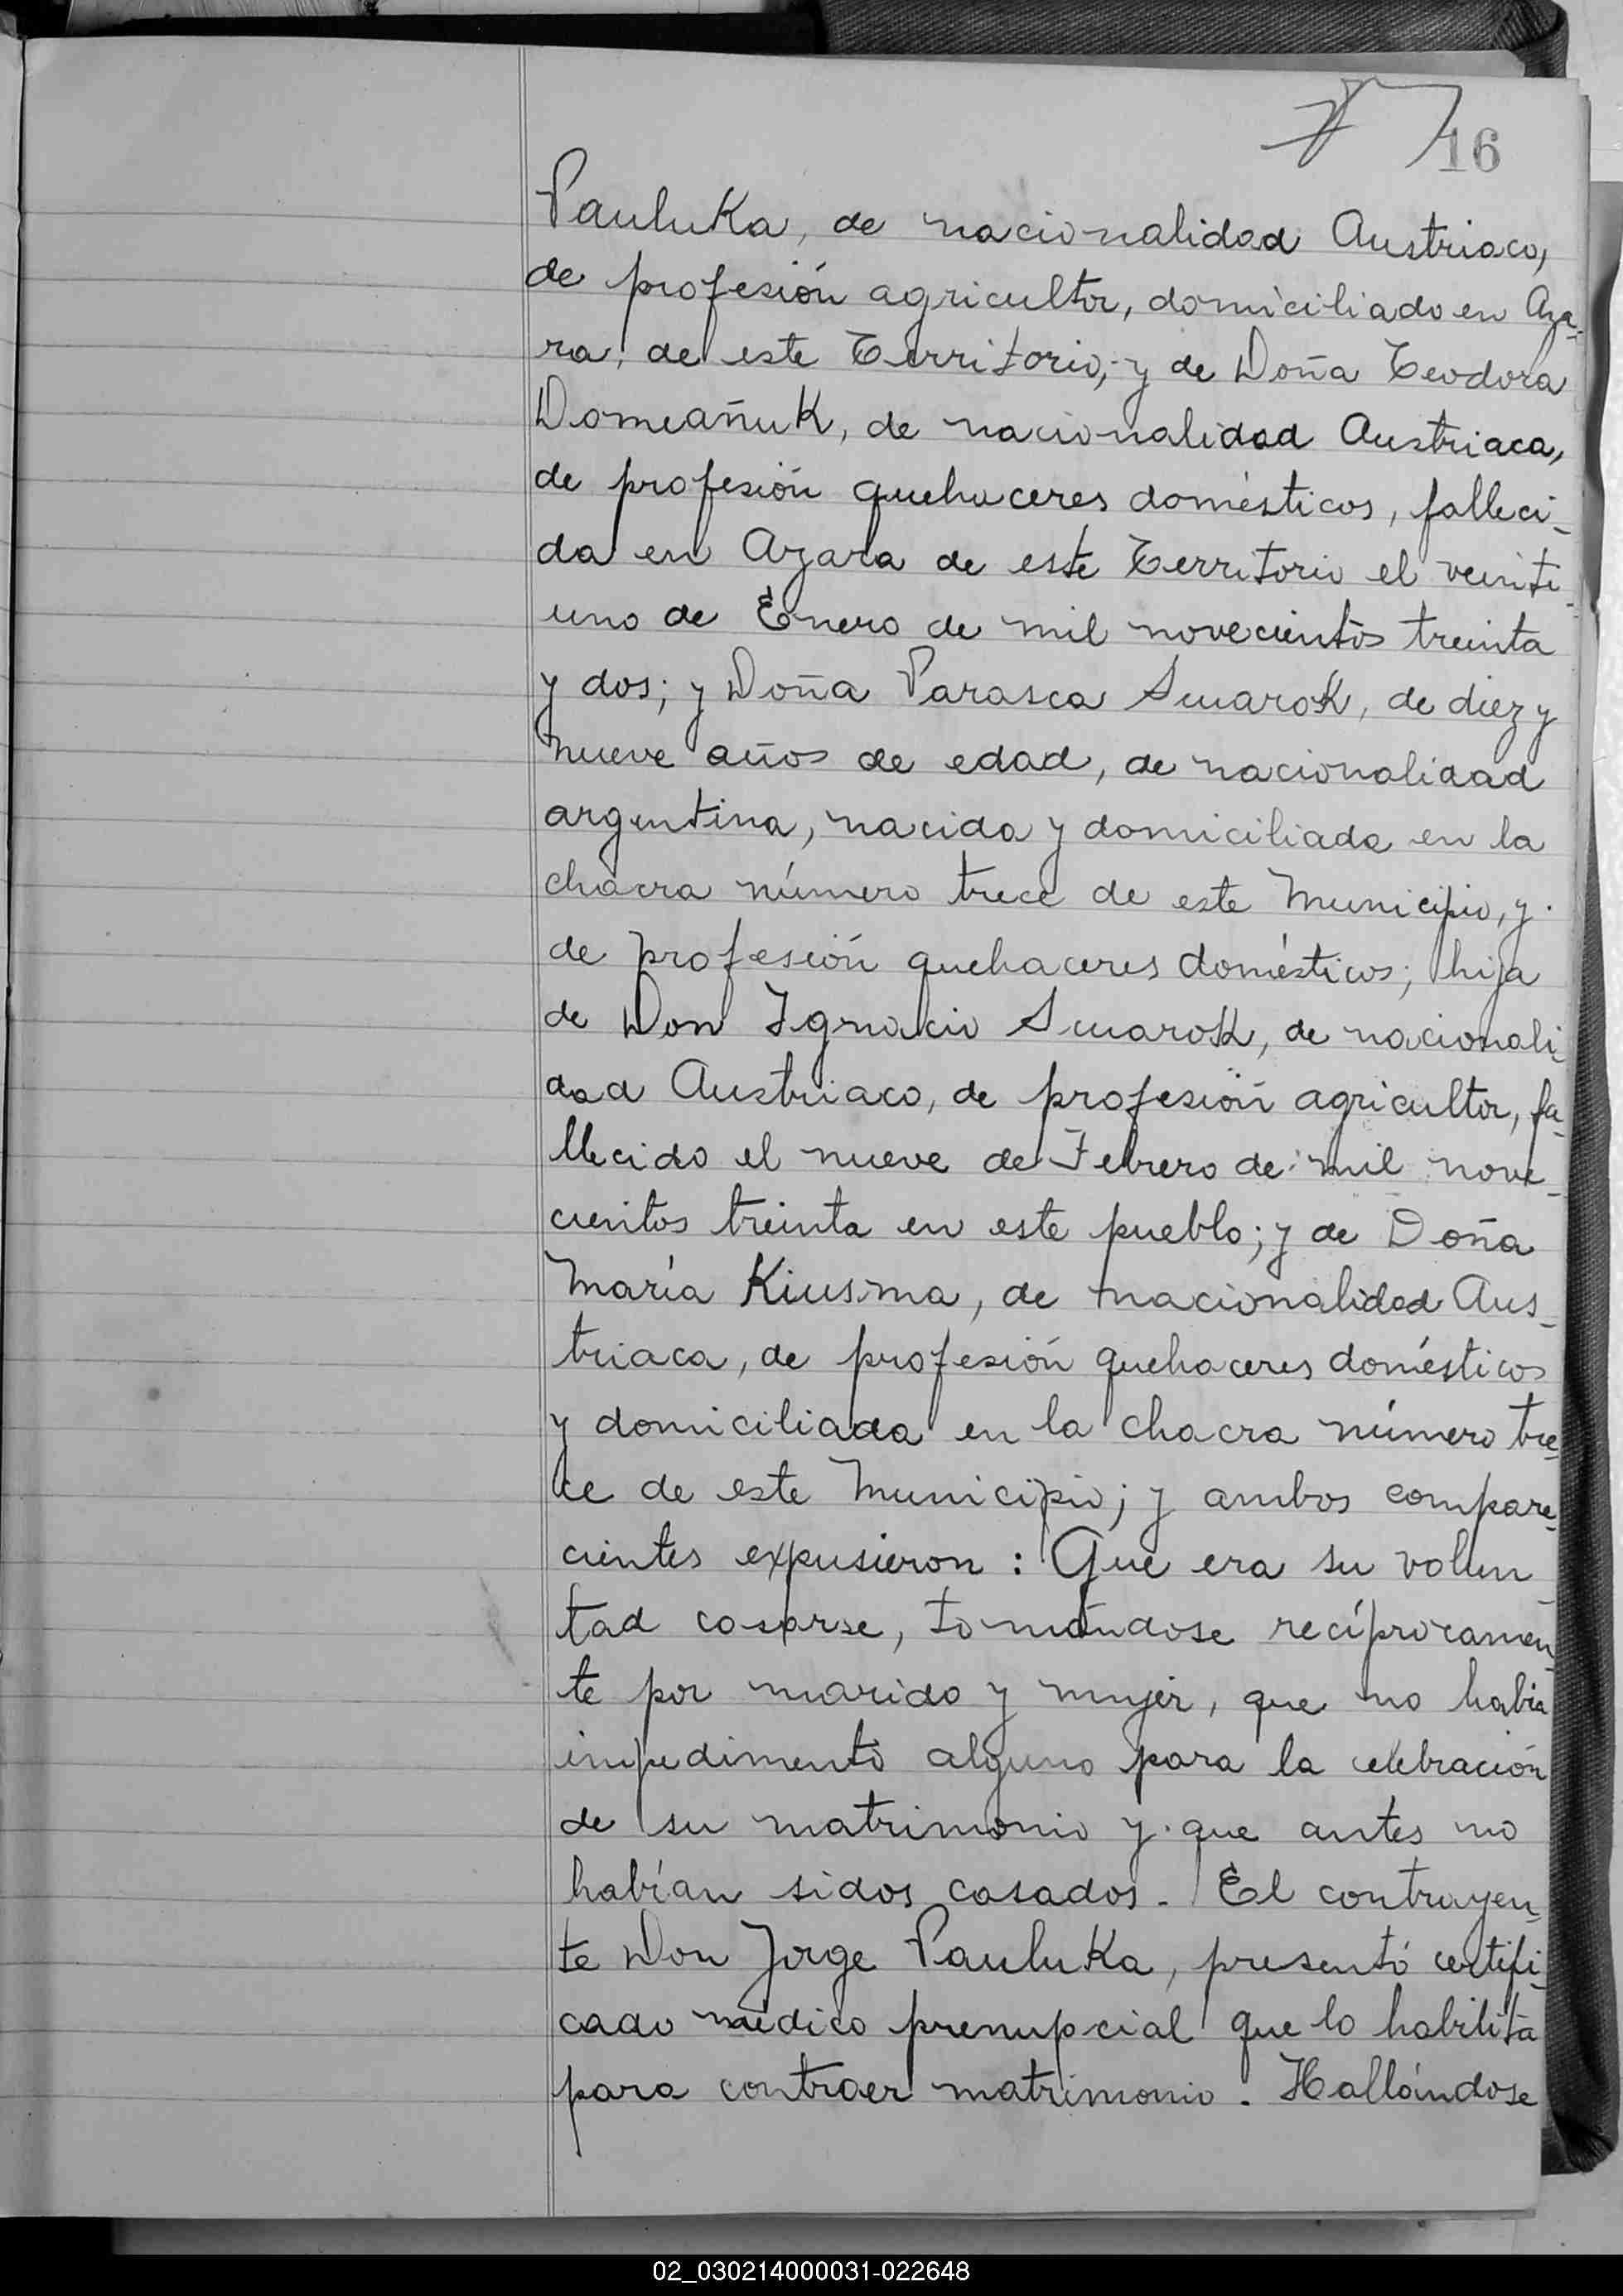 16
Pauluka, de nacionalidad Austriaco,
de profesión agricultor, domiciliado en Aza-
ra, de este Territorio; y de Doña Teodora
Domeañuk, de nacionalidad Austriaca,
de profesión quehaceres domésticos, falleci-
da en Azara de este Territorio el veinti-
uno de Enero de mil novecientos treinta
y dos; y Doña Parasca Swarok, de diez y
nueve años de edad, de nacionalidad
argentina, nacida y domiciliada en la
chacra número trece de este Municipio, y
de profesión quehaceres domésticos; hija
de Don Ignacio Swarok, de nacionali-
dad Austriaco, de profesión agricultor, fa-
llecido el nueve de Febrero de mil nove-
cientos treinta en este pueblo; y de Doña
María Kiusma, de nacionalidad Aus-
triaca, de profesión quehaceres domésticos
y domiciliada en la chacra número tre-
ce de este Municipio; y ambos compare-
cientes expusieron: Que era su volun-
tad casarse, tomándose recíprocamen-
te por marido y mujer, que no había
impedimento alguno para la celebración
de su matrimonio y que antes no
habían sidos casados. El contrayen-
te Don Jorge Pauluka, presentó certifi-
cado médico prenupcial que lo habilita
para contraer matrimonio. Hallándose
02_030214000031-022648